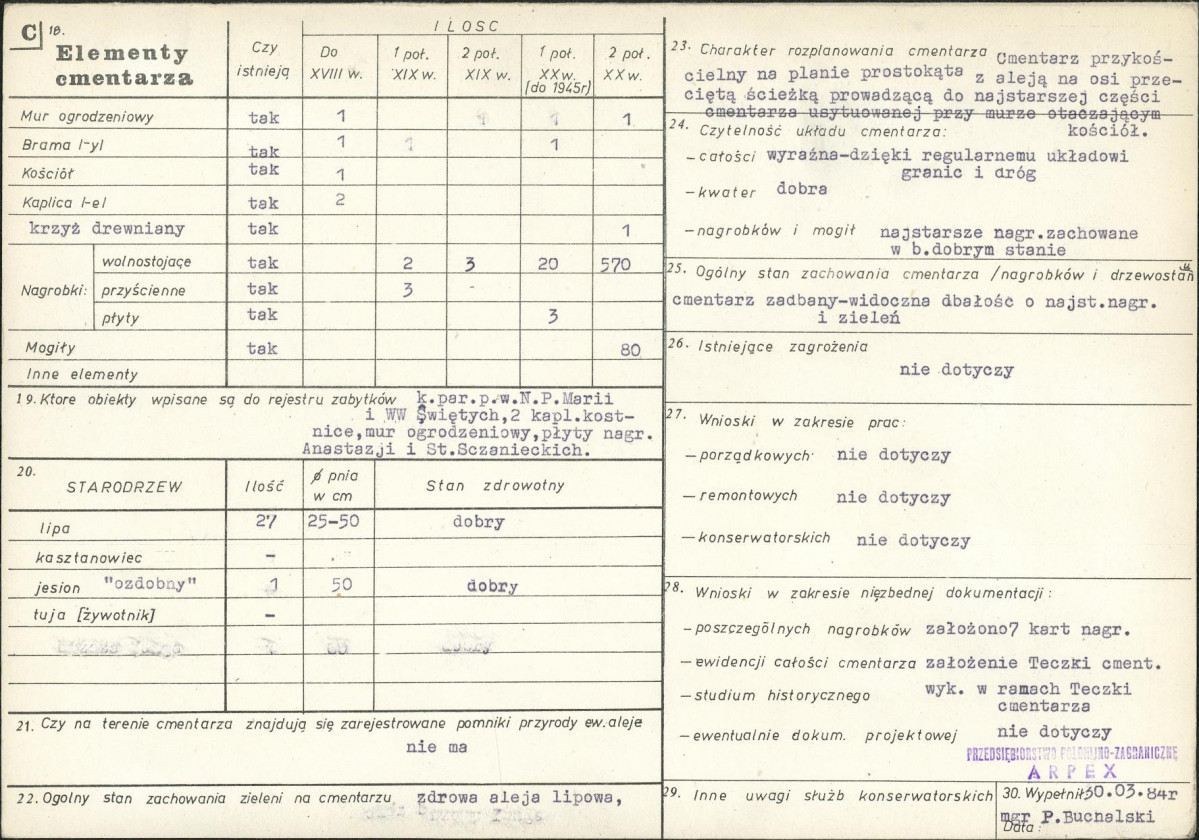 C 18.
Elementy
cmentarza
Czy
istnieją
ILOSC
Do
XVIII w.
1 poł.
XIX w.
2 poł.
XIX w.
1 poł.
XX w.
(do 1945r)
2 poł.
XX w.
Mur ogrodzeniowy tak 1 1 1 1
Brama /-y/ tak 1 1 1
Kościół tak 1
Kaplica /-e/ tak 2
krzyż drewniany tak 1
Nagrobki: wolnostojące tak 2 3 20 570
przyścienne tak 3 -
płyty tak 3
Mogiły tak 80
Inne elementy
19. Ktore obiekty wpisane są do rejestru zabytków k.par.p.w.N.P.Marii
i WW Świętych,2 kapl.kost-
nice,mur ogrodzeniowy,płyty nagr.
Anastazji i St.Sczanieckich.
20.
STARODRZEW
Ilość
ø pnia
w cm
Stan zdrowotny
lipa 27 25-50 dobry
kasztanowiec -
jesion "ozdobny" 1 50 dobry
tuja [żywotnik] -
21. Czy na terenie cmentarza znajdują się zarejestrowane pomniki przyrody ew. aleje
nie ma
22. Ogolny stan zachowania zieleni na cmentarzu zdrowa aleja lipowa,
23. Charakter rozplanowania cmentarza Cmentarz przykoś-
cielny na planie prostokąta z aleją na osi prze-
ciętą ścieżką prowadzącą do najstarszej części
cmentarza usytuowanej przy murze otaczającym
kościół.
24. Czytelność układu cmentarza:
- całości wyraźna-dzięki regularnemu układowi
granic i dróg
- kwater dobra
- nagrobków i mogił najstarsze nagr.zachowane
w b.dobrym stanie
25. Ogólny stan zachowania cmentarza /nagrobków i drzewostanu
cmentarz zadbany-widoczna dbałość o najst.nagr.
i zieleń
26. Istniejące zagrożenia
nie dotyczy
27. Wnioski w zakresie prac:
- porządkowych nie dotyczy
- remontowych nie dotyczy
- konserwatorskich nie dotyczy
28. Wnioski w zakresie niezbednej dokumentacji:
- poszczególnych nagrobków założono7 kart nagr.
- ewidencji całości cmentarza założenie Teczki cment.
- studium historycznego wyk. w ramach Teczki
cmentarza
- ewentualnie dokum. projektowej nie dotyczy
PRZEDSIĘBIORSTWO POLONIJNO-ZAGRANICZNE
ARPEX
29. Inne uwagi służb konserwatorskich
30. Wypełnił 30.03.84r
mgr P.Buchalski
Data: